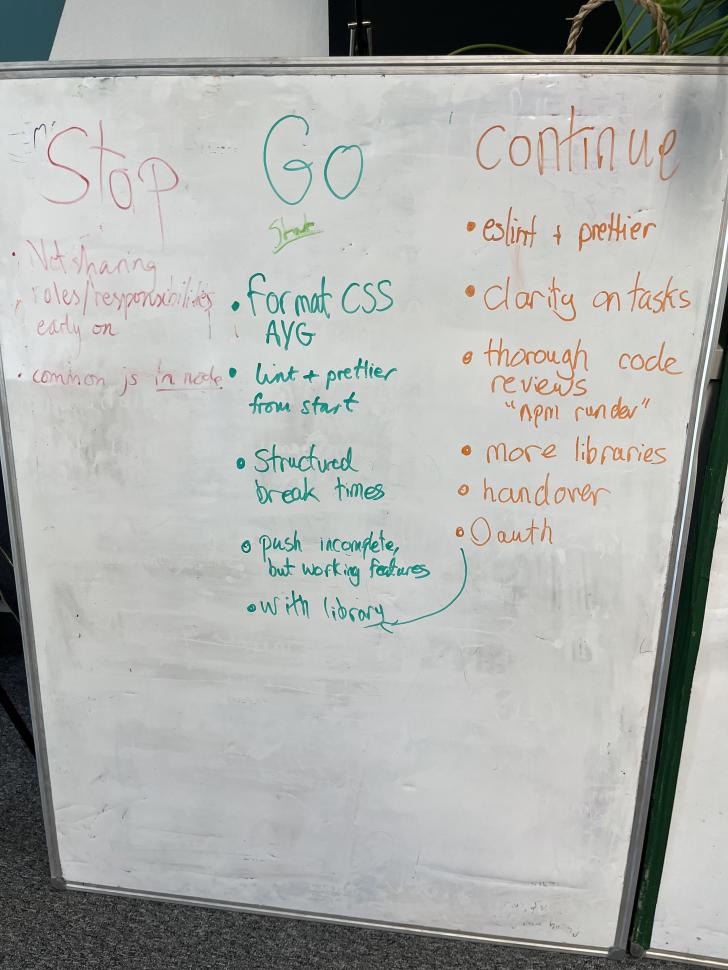 Stop
• Not sharing
roles/responsibilities
early on
• common js in node
Go
Start
• Format CSS
AYG
• lint + prettier
from start
• Structured
break times
• push incomplete,
but working features
• with library
Continue
• eslint + prettier
• clarity on tasks
• thorough code
reviews
"npm run dev"
• more libraries
• handover
• Oauth